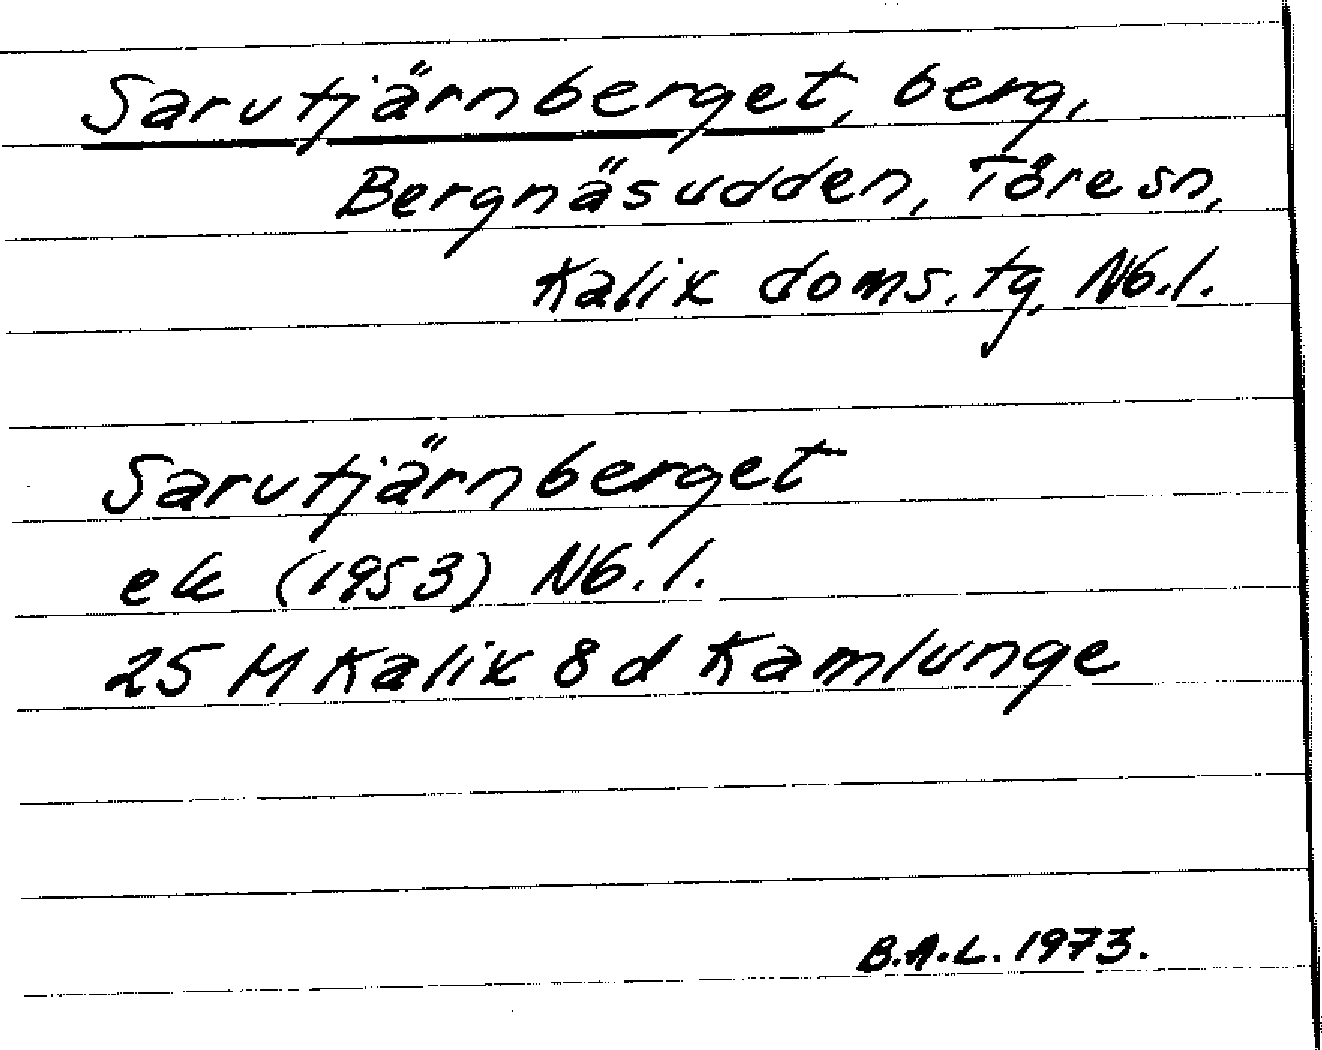 Sarutjärnberget, berg,
Bergnäsudden, Töre sn,
Kalix doms. tg, Nb. l.
Sarutjärnberget
ek (1953) Nb. l.
25 M Kalix 8 d Kamlunge
B.A.L. 1973.